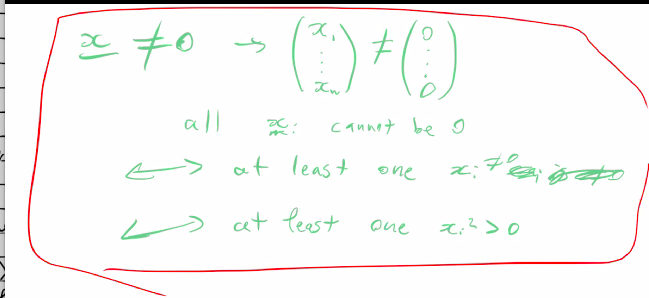 x ≠ 0 → (x₁ ⋮ xₙ) ≠ (0 ⋮ 0)
all xᵢ cannot be 0
⟷ at least one xᵢ ≠ 0
⟷ at least one xᵢ² > 0